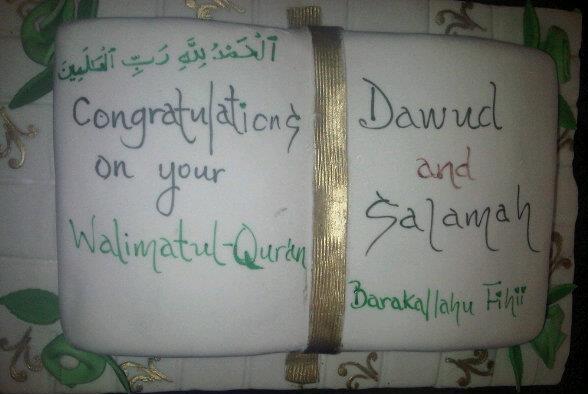 اَلْحَمْدُ لِلَّهِ رَبِّ الْعَالَمِينَ
Congratulations
on your
Walimatul-Qur'an
Dawud
and
Salamah
Barakallahu Fihii